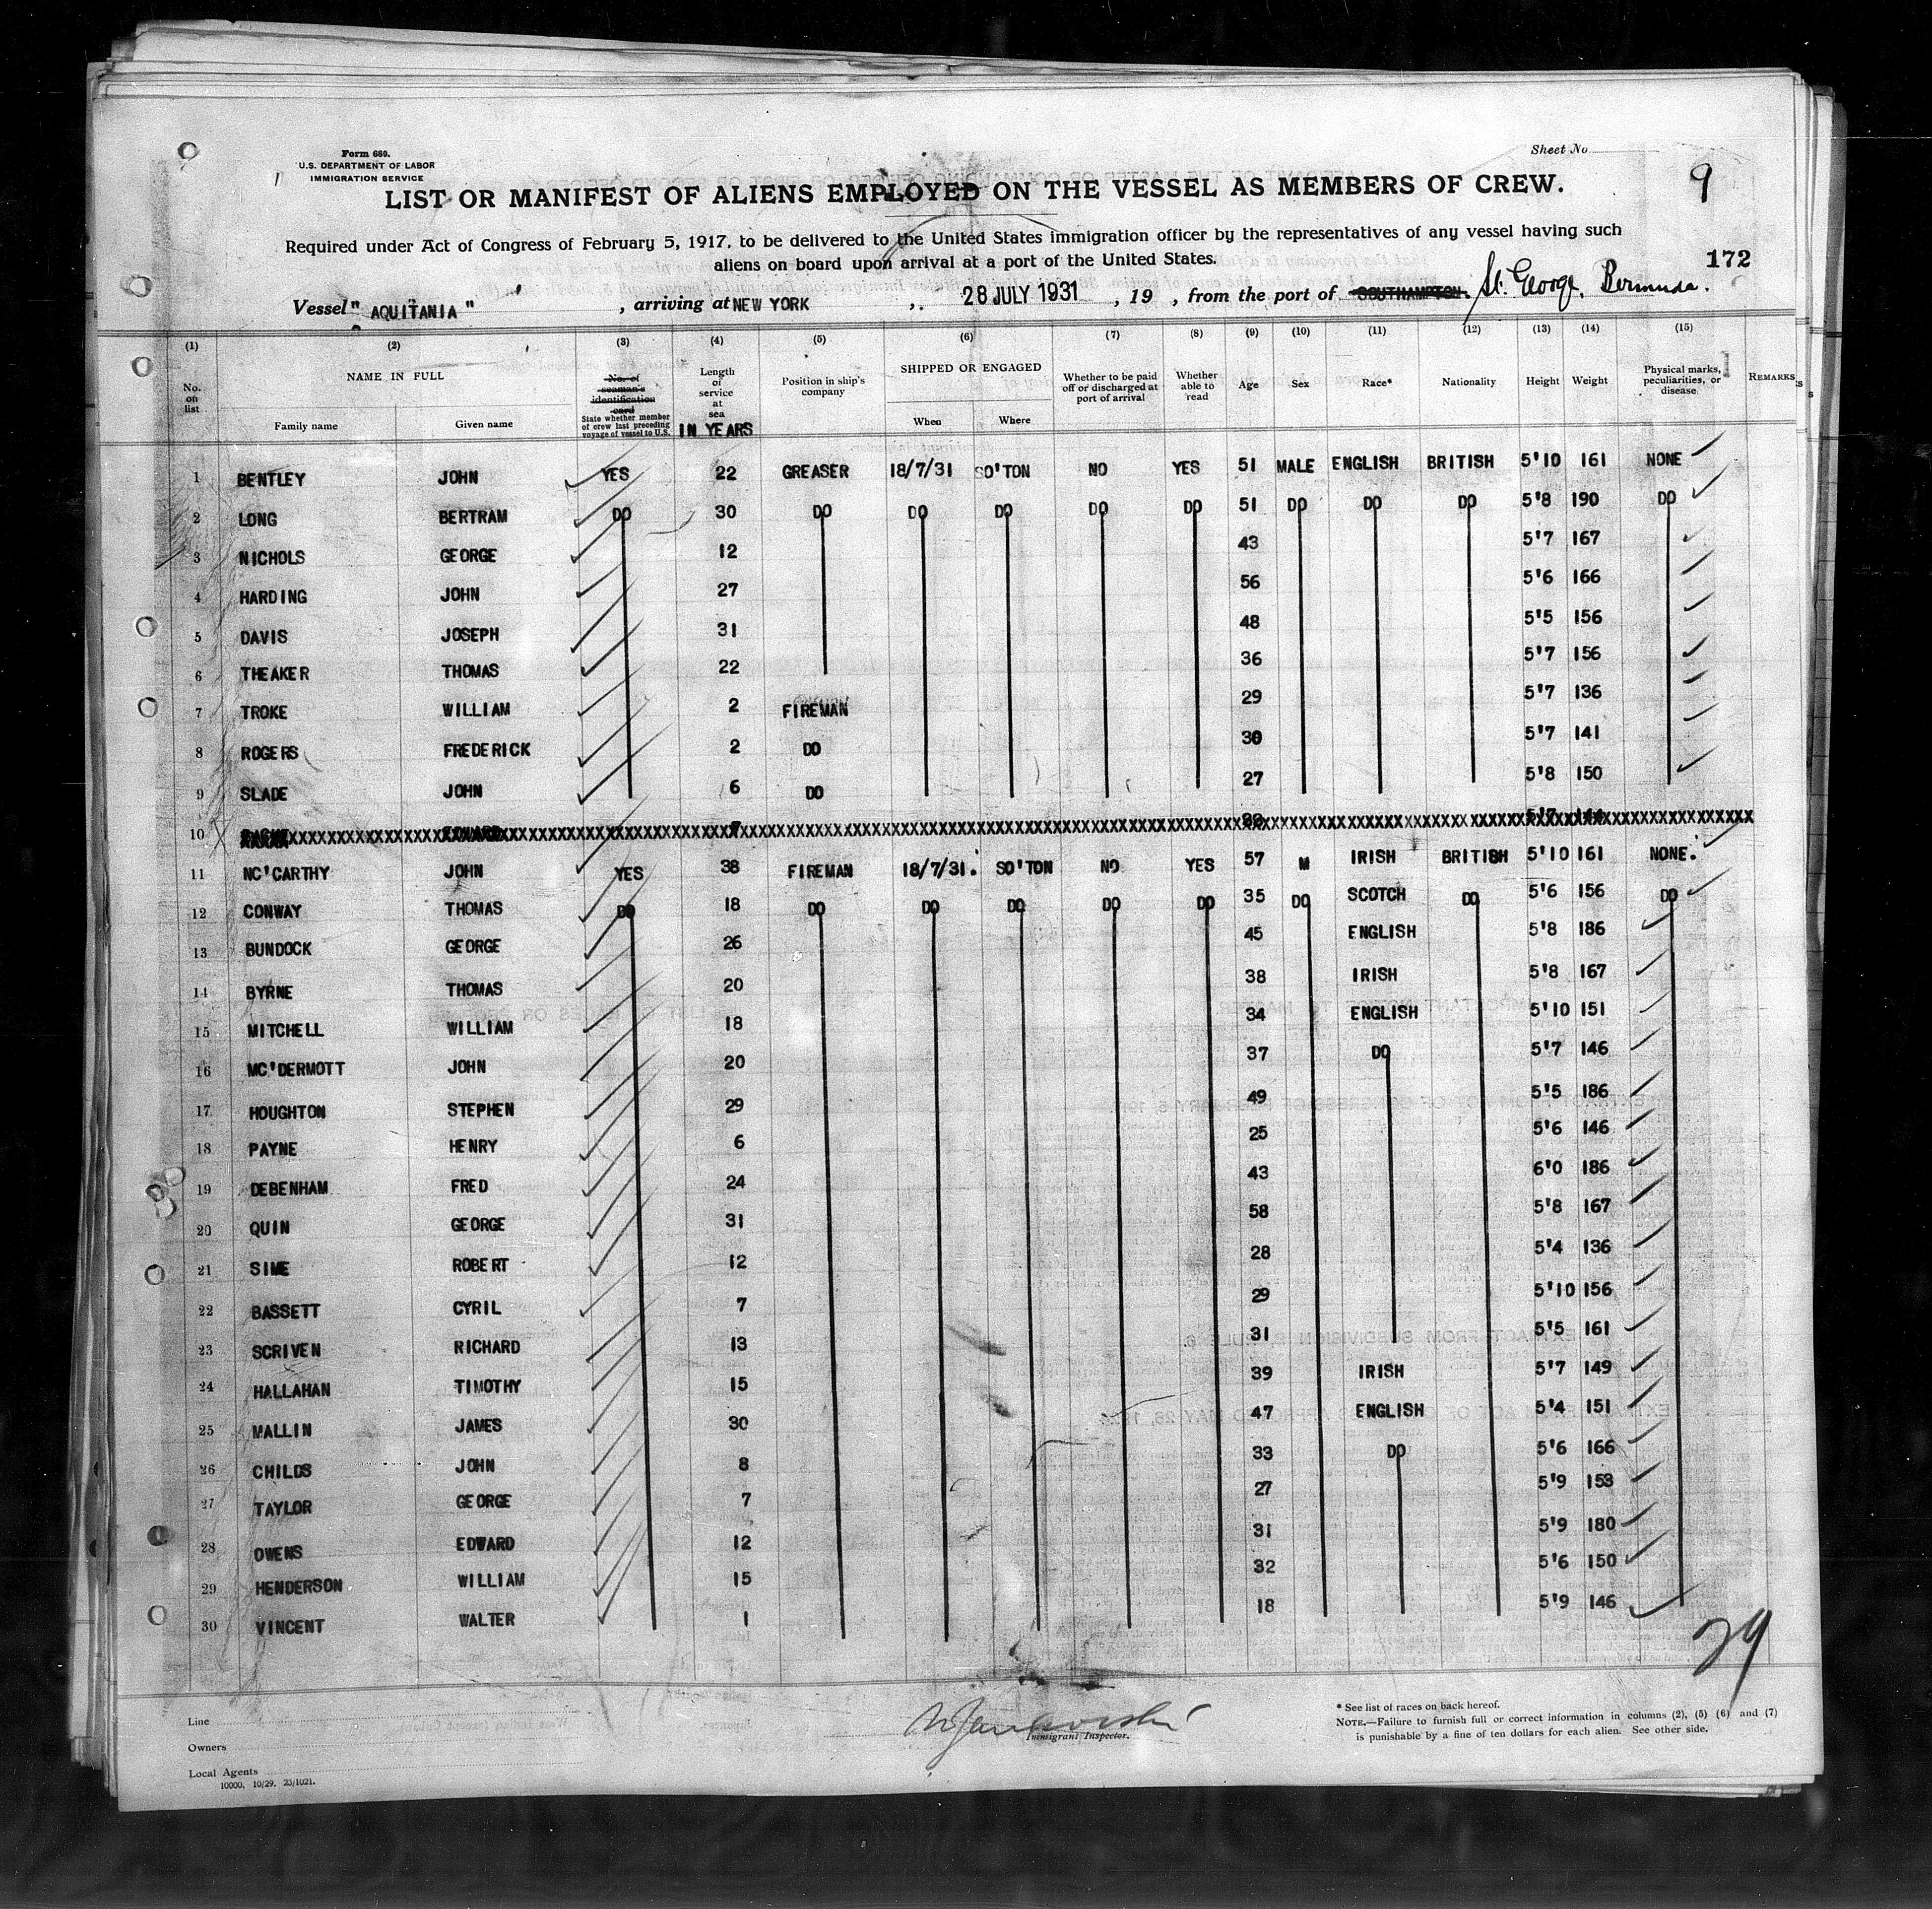 Form 680.
U.S. DEPARTMENT OF LABOR
IMMIGRATION SERVICE
Sheet No.
9
LIST OR MANIFEST OF ALIENS EMPLOYED ON THE VESSEL AS MEMBERS OF CREW.
Required under Act of Congress of February 5, 1917, to be delivered to the United States immigration officer by the representatives of any vessel having such
aliens on board upon arrival at a port of the United States.
172
Vessel "AQUITANIA", arriving at NEW YORK, 28 JULY 1931, 19 , from the port of SOUTHAMPTON. St. George, Bermuda.
(1) (2) (3) (4) (5) (6) (7) (8) (9) (10) (11) (12) (13) (14) (15)
No. on list NAME IN FULL Family name Given name No. of seaman's identification card State whether member of crew last preceding voyage of vessel to U.S. Length of service at sea IN YEARS Position in ship's company SHIPPED OR ENGAGED When Where Whether to be paid off or discharged at port of arrival Whether able to read Age Sex Race* Nationality Height Weight Physical marks, peculiarities, or disease REMARKS
1 BENTLEY JOHN YES 22 GREASER 18/7/31 SO'TON NO YES 51 MALE ENGLISH BRITISH 5'10 161 NONE
2 LONG BERTRAM DO 30 DO DO DO DO DO 51 DO DO DO 5'8 190 DO
3 NICHOLS GEORGE 12 43 5'7 167
4 HARDING JOHN 27 56 5'6 166
5 DAVIS JOSEPH 31 48 5'5 156
6 THEAKER THOMAS 22 36 5'7 156
7 TROKE WILLIAM 2 FIREMAN 29 5'7 136
8 ROGERS FREDERICK 2 DO 30 5'7 141
9 SLADE JOHN 6 DO 27 5'8 150
10
11 NC'CARTHY JOHN YES 38 FIREMAN 18/7/31. SO'TON NO YES 57 M IRISH BRITISH 5'10 161 NONE.
12 CONWAY THOMAS DO 18 DO DO DO DO DO 35 DO SCOTCH DO 5'6 156 DO
13 BUNDOCK GEORGE 26 45 ENGLISH 5'8 186
14 BYRNE THOMAS 20 38 IRISH 5'8 167
15 MITCHELL WILLIAM 18 34 ENGLISH 5'10 151
16 MC'DERMOTT JOHN 20 37 DO 5'7 146
17 HOUGHTON STEPHEN 29 49 5'5 186
18 PAYNE HENRY 6 25 5'6 146
19 DEBENHAM FRED 24 43 6'0 186
20 QUIN GEORGE 31 58 5'8 167
21 SIME ROBERT 12 28 5'4 136
22 BASSETT CYRIL 7 29 5'10 156
23 SCRIVEN RICHARD 13 31 5'5 161
24 HALLAHAN TIMOTHY 15 39 IRISH 5'7 149
25 MALLIN JAMES 30 47 ENGLISH 5'4 151
26 CHILDS JOHN 8 33 DO 5'6 166
27 TAYLOR GEORGE 7 27 5'9 153
28 OWENS EDWARD 12 31 5'9 180
29 HENDERSON WILLIAM 15 32 5'6 150
30 VINCENT WALTER 1 18 5'9 146
29
Line
Owners
Local Agents
10000, 10/29. 23/1021.
Immigrant Inspector.
* See list of races on back hereof.
NOTE.—Failure to furnish full or correct information in columns (2), (5) (6) and (7)
is punishable by a fine of ten dollars for each alien. See other side.